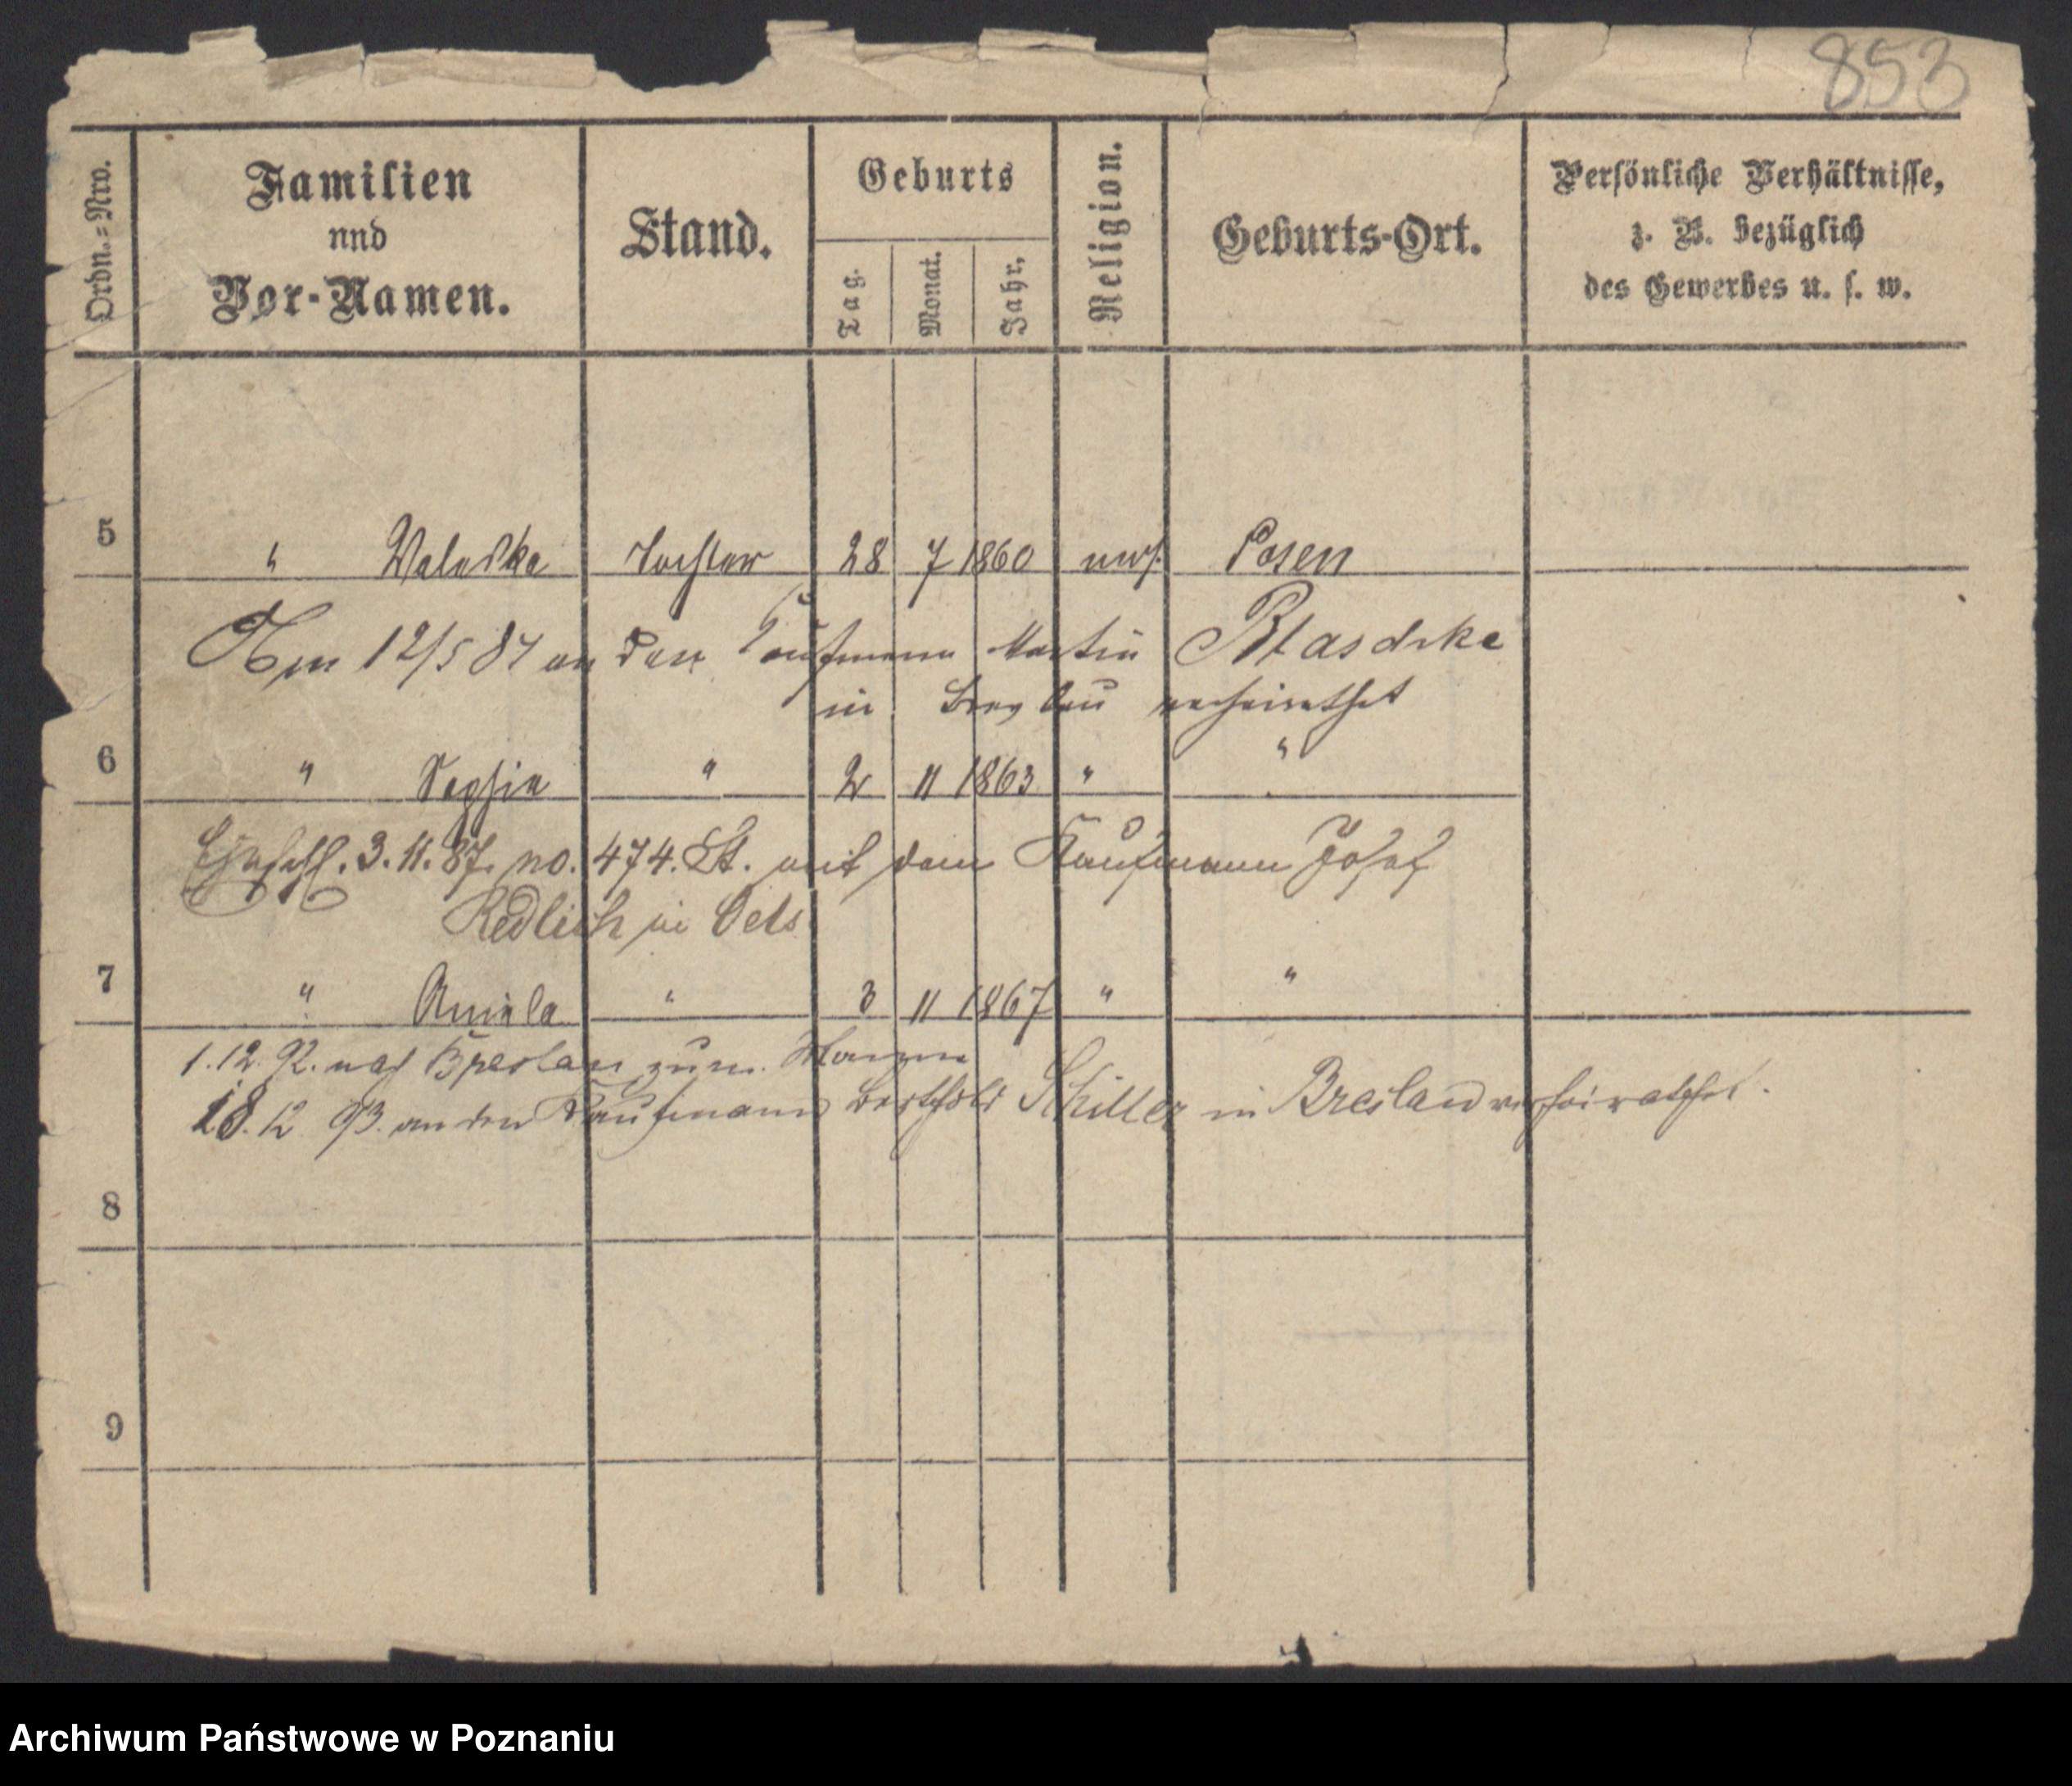 853
Ordn.=Nro.
Familien
und
Vor-Namen.
Stand.
Geburts
Tag.
Monat.
Jahr.
Religion.
Geburts-Ort.
Persönliche Verhältnisse,
z. B. bezüglich
des Gewerbes u. s. w.
5 " Waleska Tochter 28 7 1860 mos. Posen
Am 12/5 87 an den Kaufmann Martin
in Breslau verheirathet
6 " Sophie " 2 11 1863 " "
Eheschl. 3.11.87. no. 474. St. mit dem Kaufmann Josef
Redlich in Oels
7 " Amiela " 3 11 1867 " "
1.12.92. nach Breslau zum
18.12 93. an den Kaufmann Berthold Schiller in Breslau verheirathet.
8
9
Archiwum Państwowe w Poznaniu